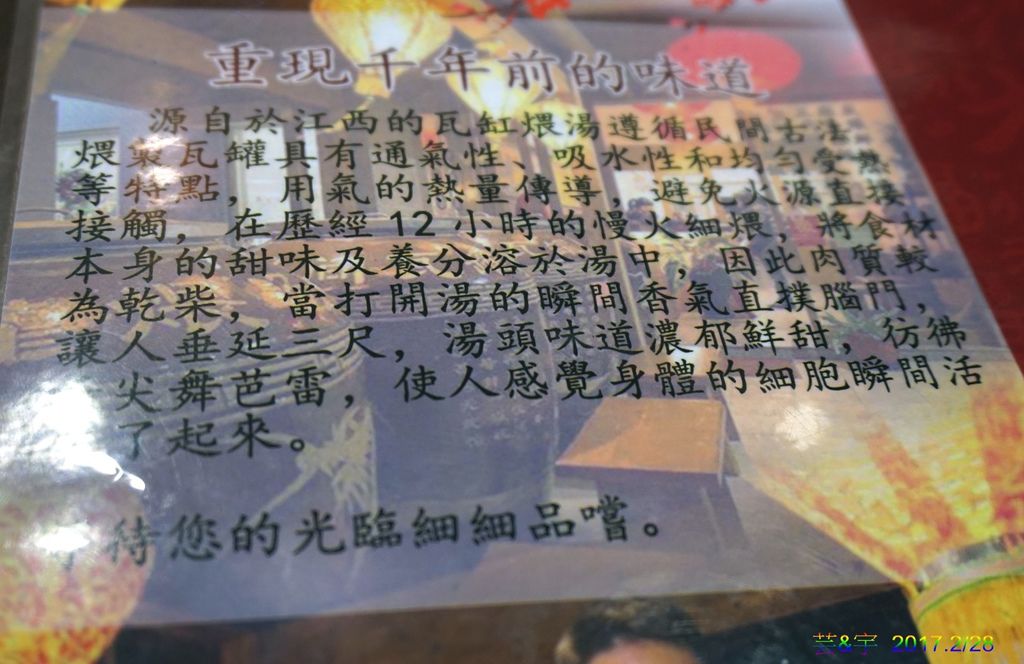 重現千年前的味道
源自於江西的瓦缸煨湯遵循民間古法
煨製瓦罐具有通氣性、吸水性和均勻受熱
等特點，用氣的熱量傳導，避免火源直接
接觸，在歷經12小時的慢火細煨，將食材
本身的甜味及養分溶於湯中，因此肉質較
為乾柴，當打開湯的瞬間香氣直撲腦門，
讓人垂延三尺，湯頭味道濃郁鮮甜，彷彿
尖舞芭雷，使人感覺身體的細胞瞬間活
了起來。
待您的光臨細細品嚐。
芸&宇 2017.2/28